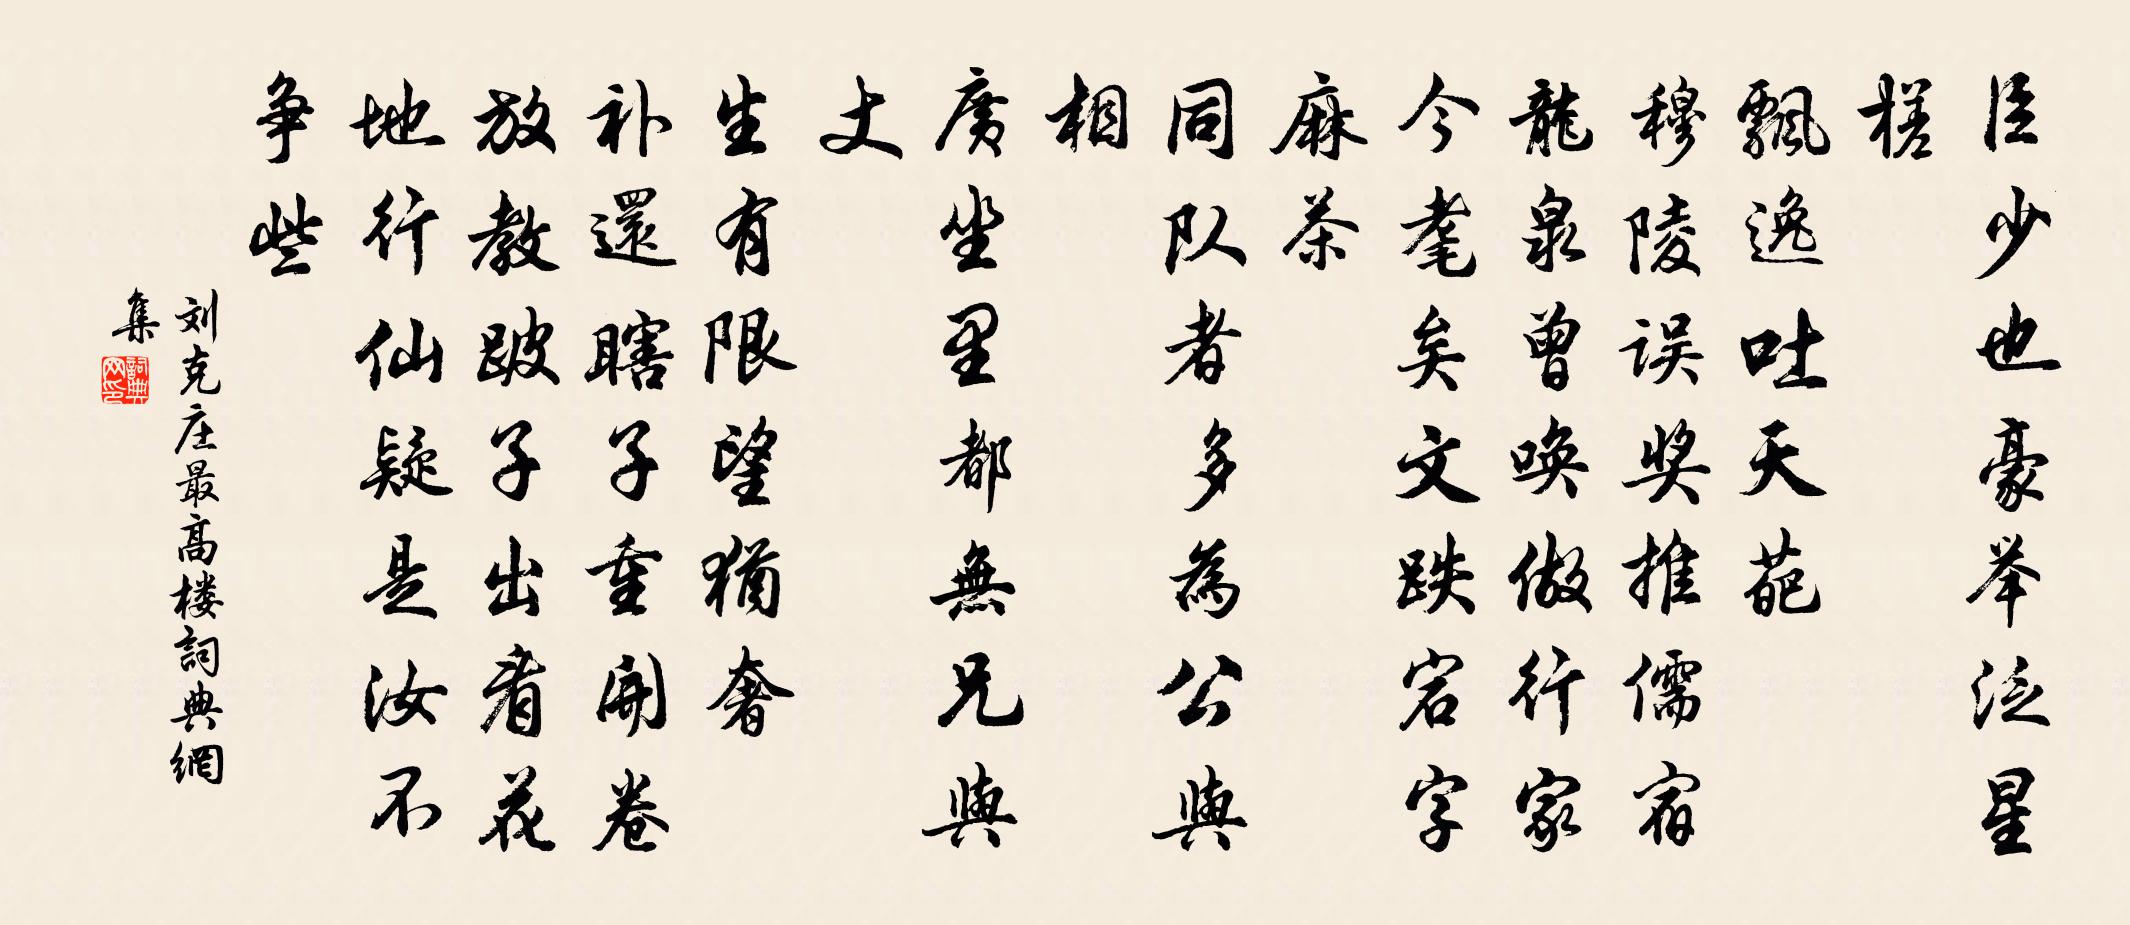 臣少也豪举泛星
槎
飄逸吐天葩
穆陵误奖推儒宿
龍泉曾喚做行家
今耄矣文跌宕字
麻茶
同队者多為公與
相
廣坐里都無兄與
丈
生有限望猶奢
补還瞎子重開卷
放教跛子出看花
地行仙疑是汝不
争些
刘克庄最高楼詞典網
集
詞典網印